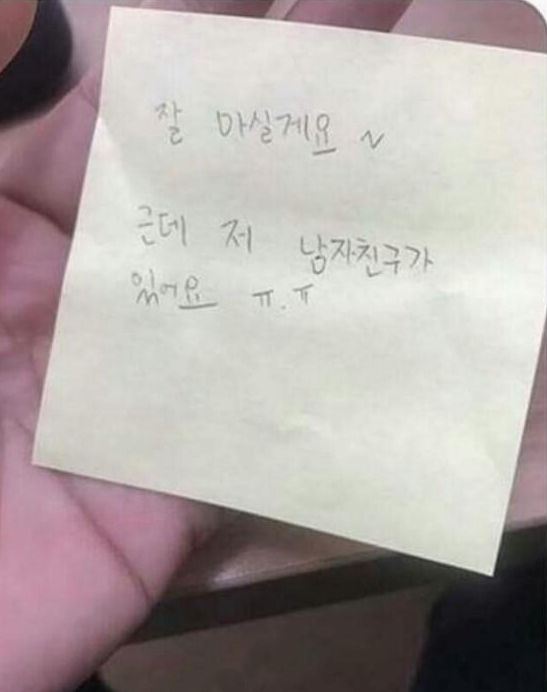 잘 마실게요 ~
근데 저 남자친구가
있어요 ㅠ.ㅠ